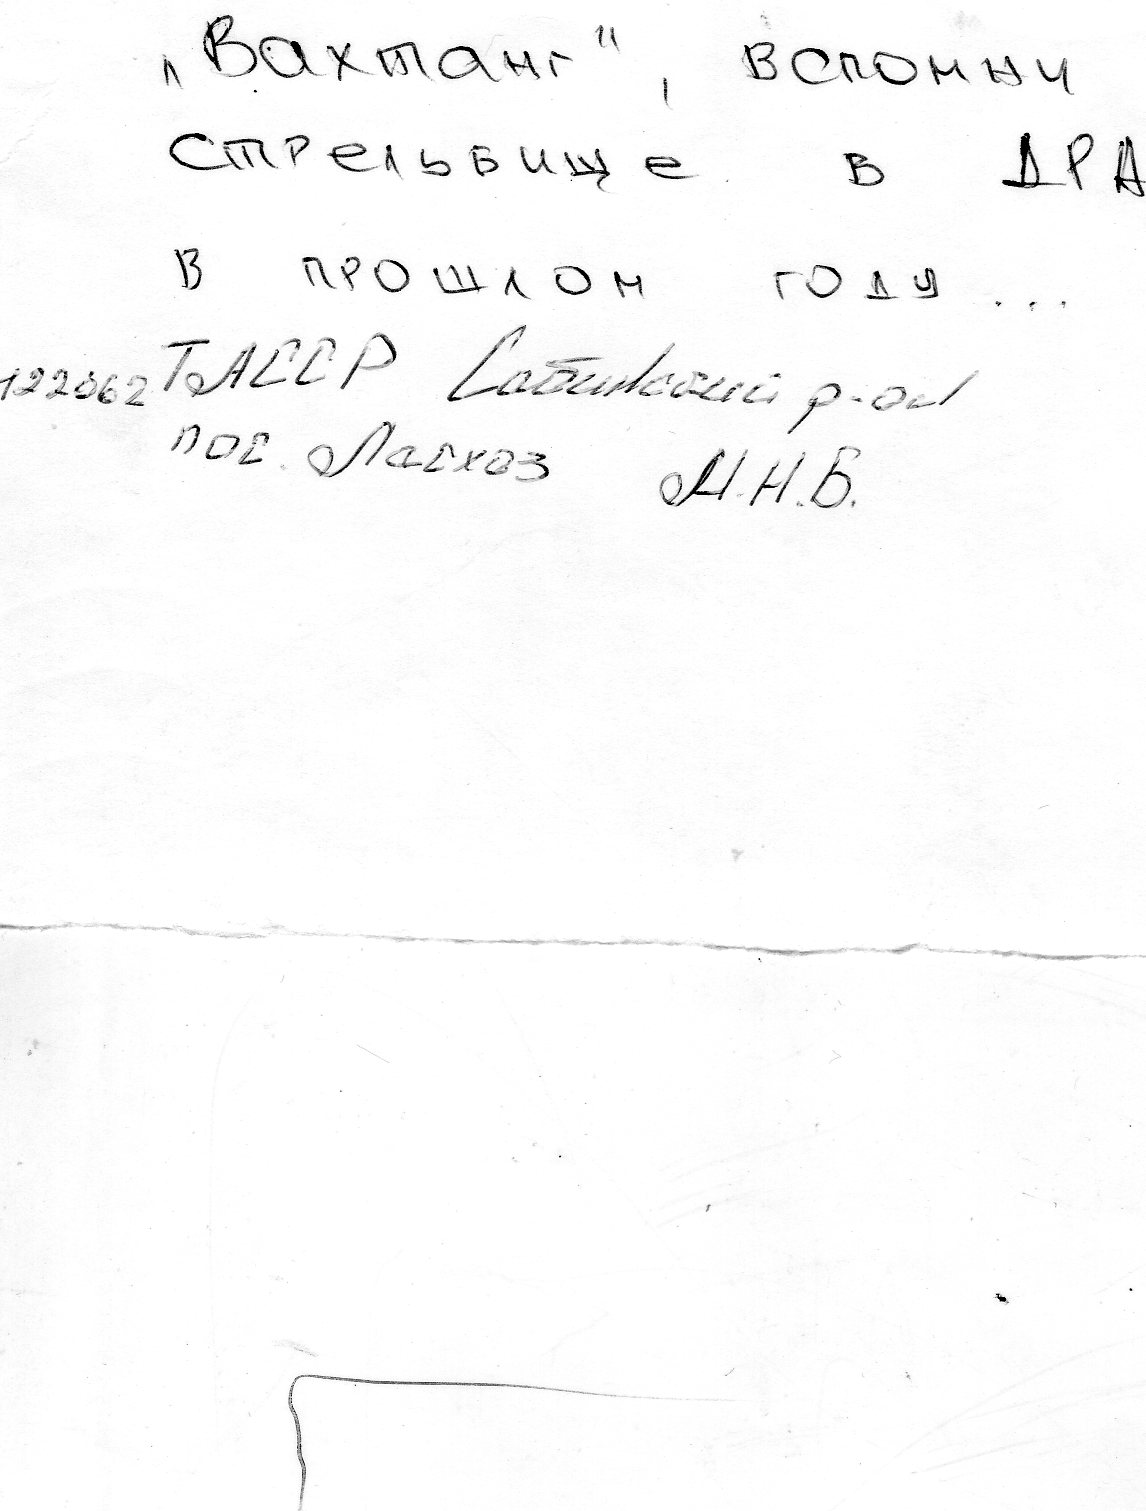 „Вахтанг", вспомни
стрельбище в ДРА
в прошлом году...
422062 ТАССР Сабинский р-он
пос. Лесхоз М.Н.Б.